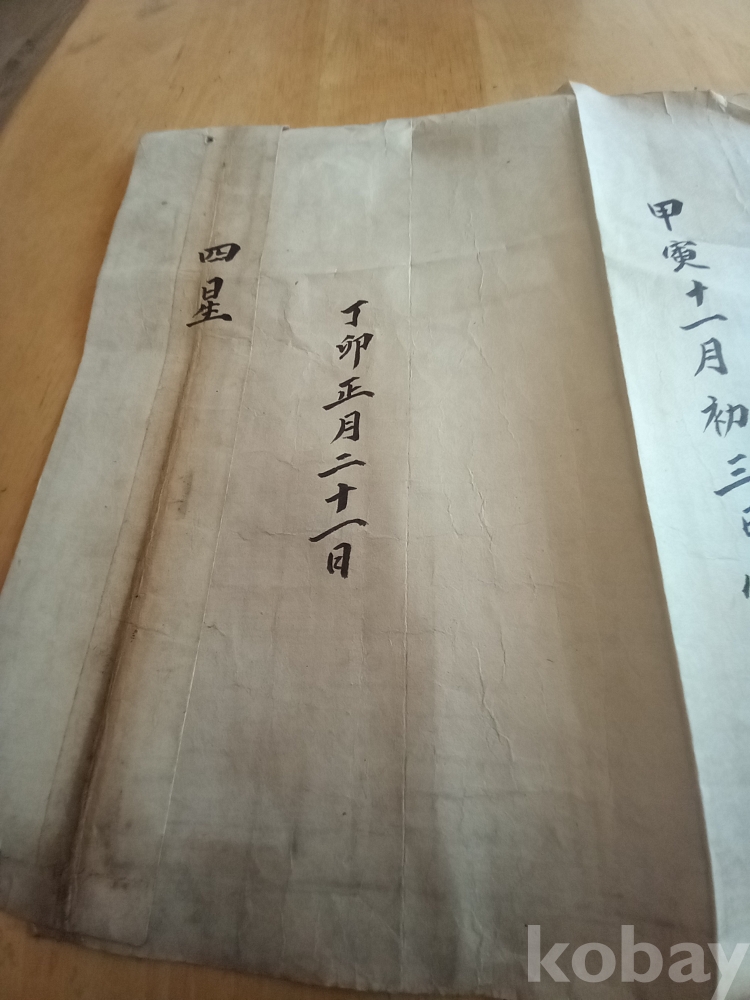 甲寅十一月初三日
丁卯正月二十一日
四星
kobay